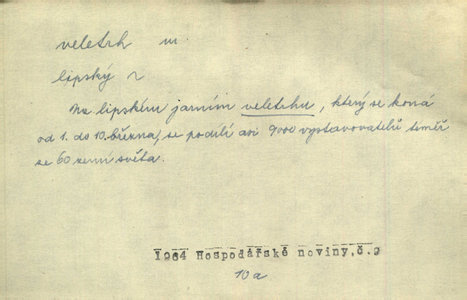 veletrh m.
lipský
Na lipském jarním veletrhu, který se koná
od 1. do 10. března, se podílí asi 9000 vystavovatelů téměř
ze 60 zemí světa.
1964 Hospodářské noviny, č.9
10a